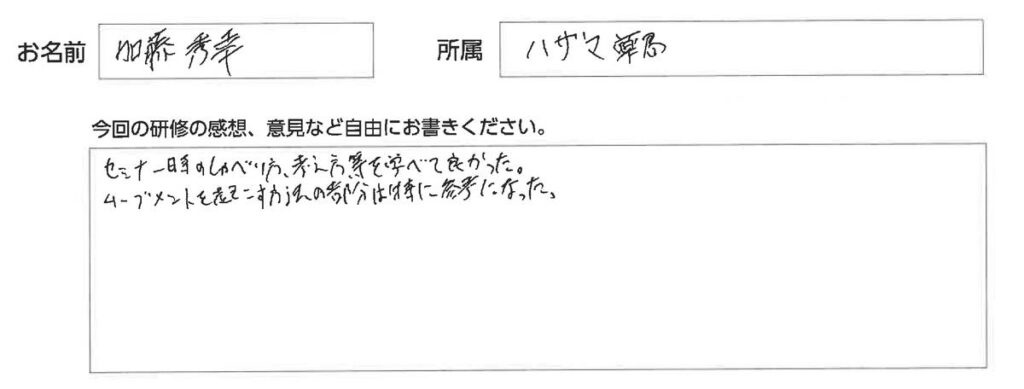 お名前 加藤 秀幸 所属 ハザマ薬局
今回の研修の感想、意見など自由にお書きください。
セミナー時のしゃべり方、考え方等を学べて良かった。
ムーブメントを起こす方法の部分は特に参考になった。